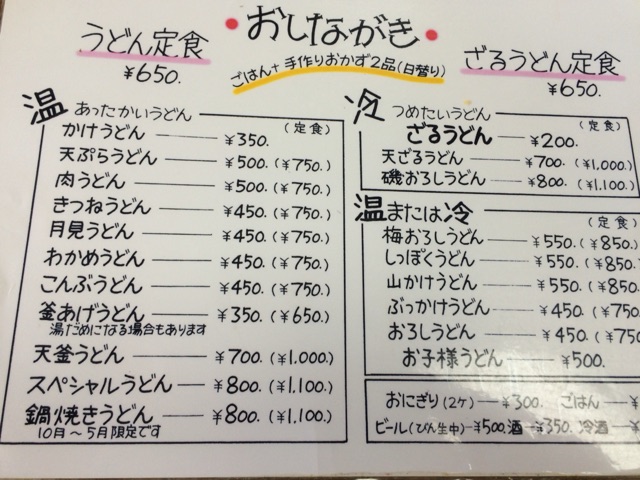 おしながき
うどん定食
¥650.
ごはん+手作りおかず2品(日替り)
ざるうどん定食
¥650.
温 あったかいうどん
(定食)
かけうどん ¥350.
天ぷらうどん ¥500.(¥750.)
肉うどん ¥500.(¥750.)
きつねうどん ¥450.(¥750.)
月見うどん ¥450.(¥750.)
わかめうどん ¥450.(¥750.)
こんぶうどん ¥450.(¥750.)
釜あげうどん ¥350.(¥650.)
湯だめになる場合もあります
天釜うどん ¥700.(¥1.000.)
スペシャルうどん ¥800.(¥1.100.)
鍋焼きうどん ¥800.(¥1.100.)
10月~5月限定です
冷 つめたいうどん
(定食)
ざるうどん ¥200.
天ざるうどん ¥700.(¥1.000.)
磯おろしうどん ¥800.(¥1.100.)
温または冷
(定食)
梅おろしうどん ¥550.(¥850.)
しっぽくうどん ¥550.(¥850.
山かけうどん ¥550.(¥850.
ぶっかけうどん ¥450.(¥750.
おろしうどん ¥450.(¥750
お子様うどん ¥500.
おにぎり(2ケ) ¥300. ごはん ¥
ビール(びん生中) ¥500. 酒 ¥350. 冷酒 ¥